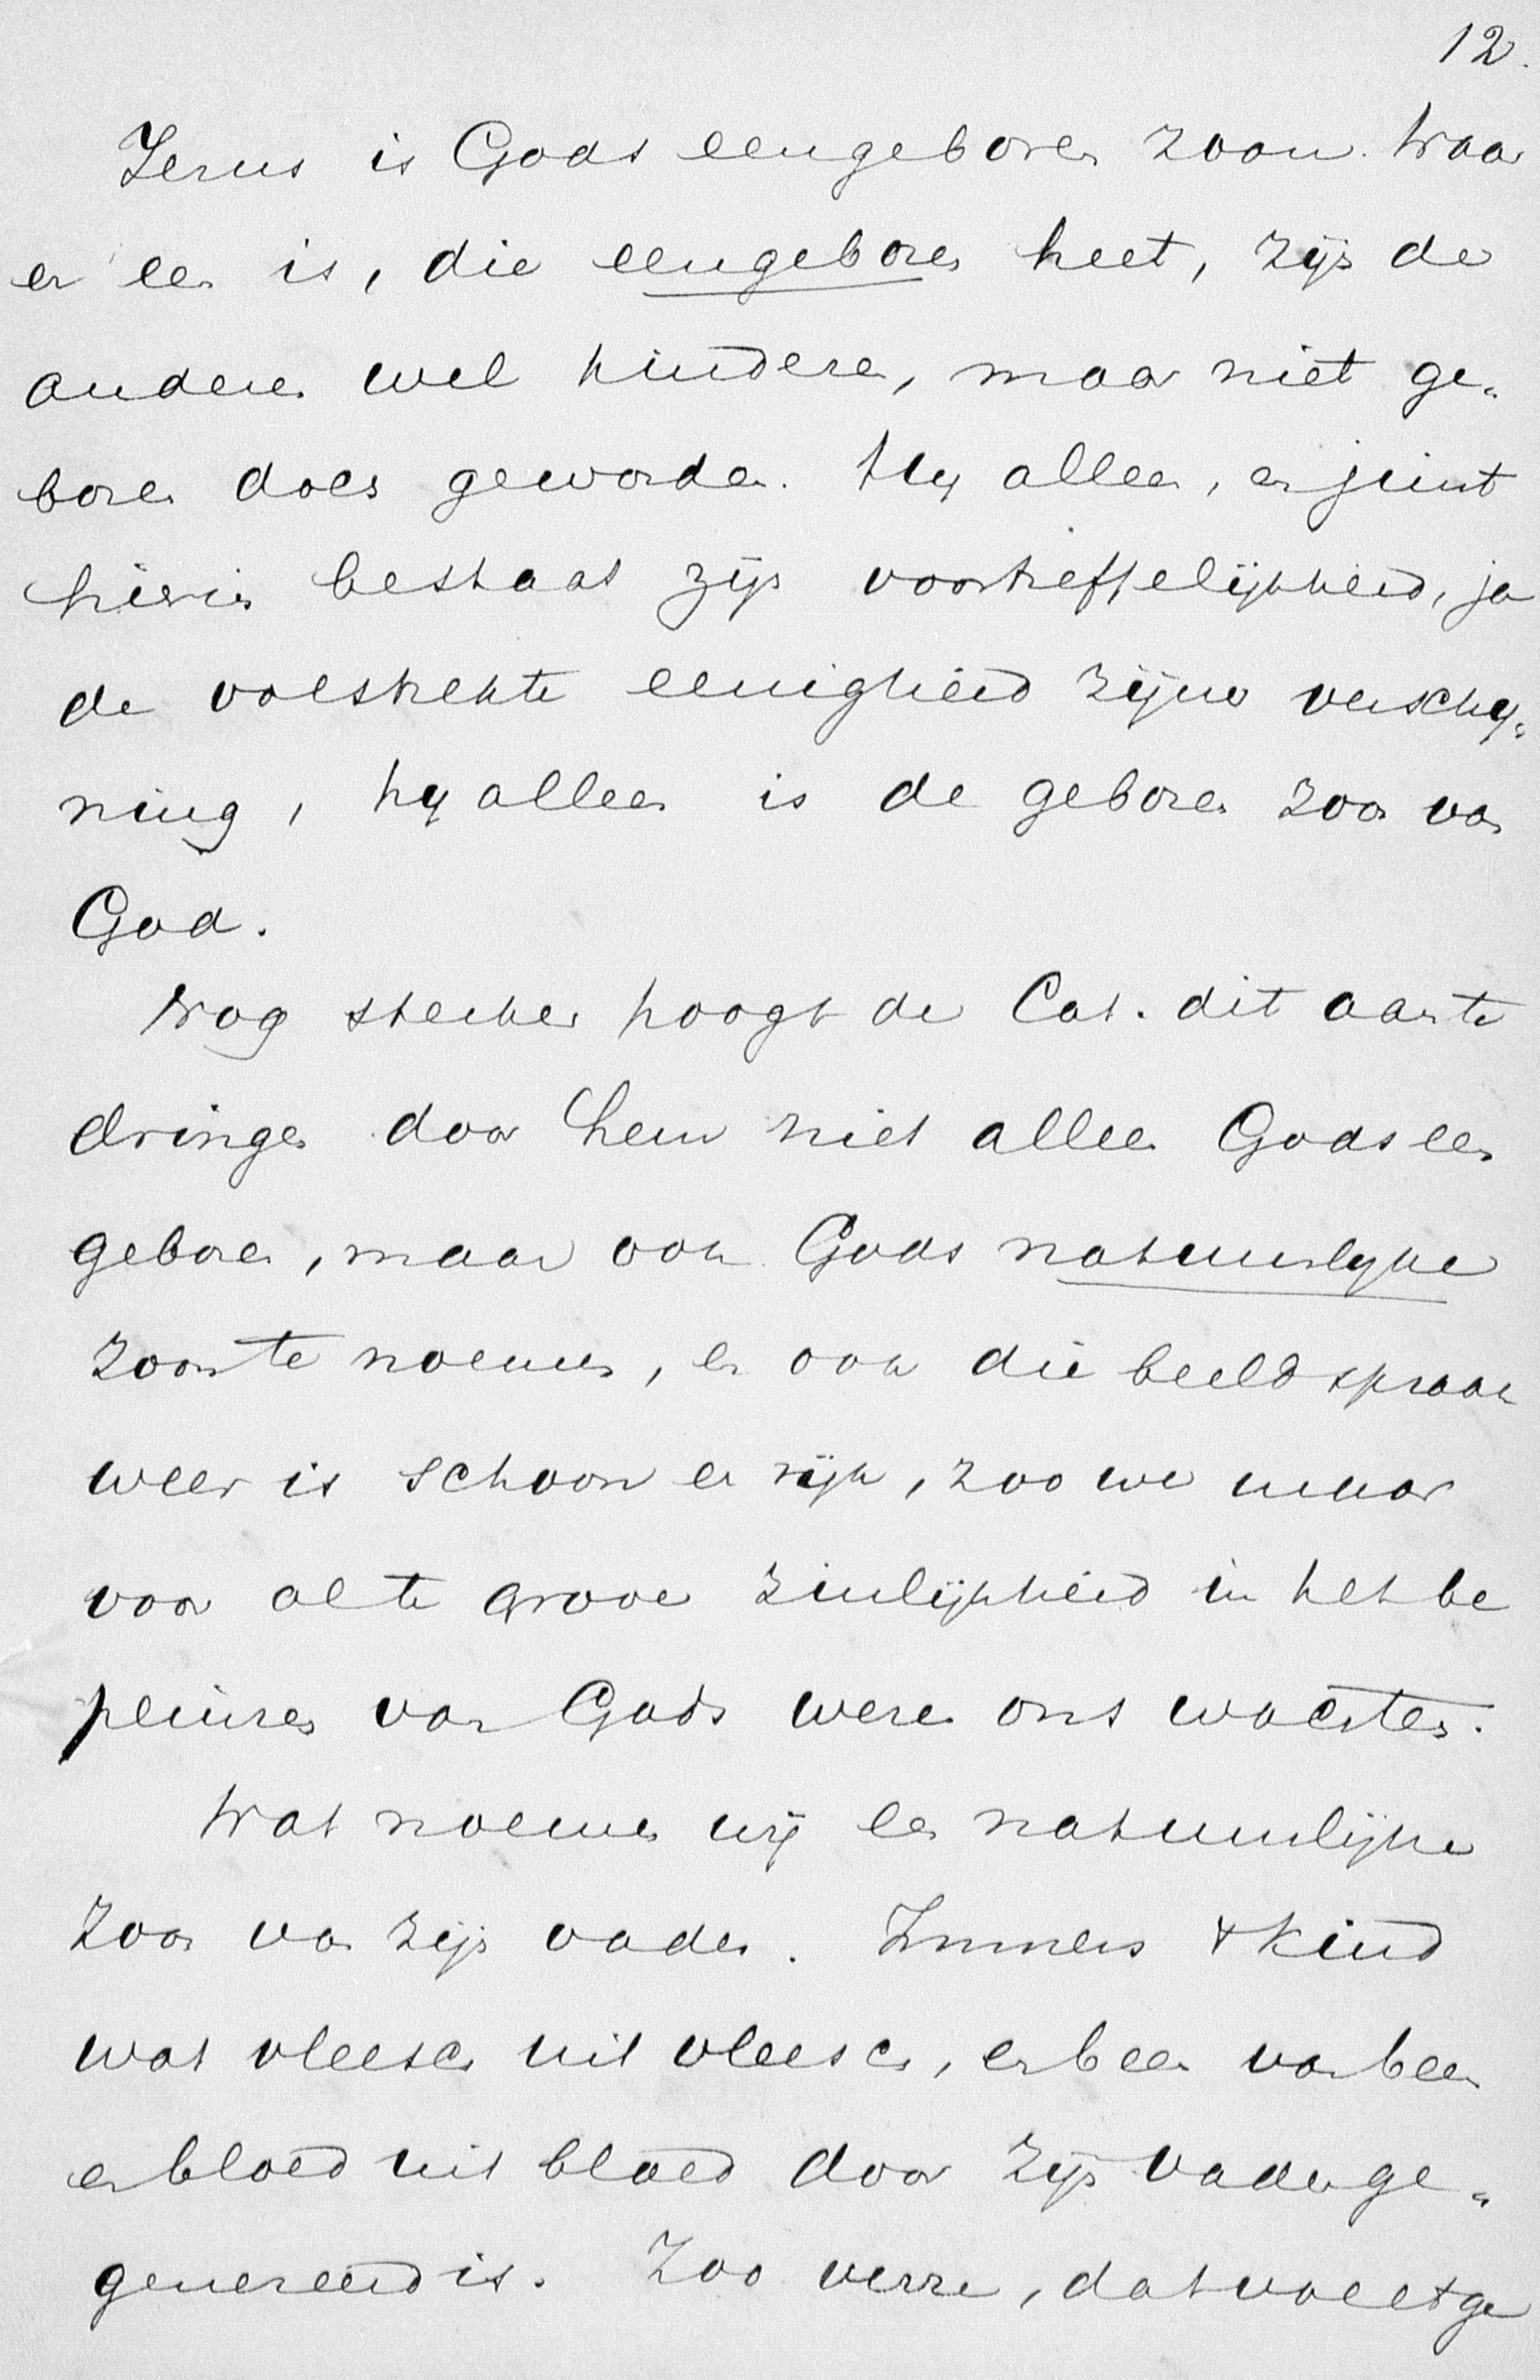 12.
Jezus is Gods eengeboren zoon. Waar
er een is, die eengeboren heet, zijn de
anderen wel kinderen, maar niet ge-
boren doch geworden. Hy alleen, en juist
hierin bestaat zijn voortreffelijkheid, ja
de volstrekte eenigheid zijner verschy-
ning, hy alleen is de geboren Zoon van
God.
Nog sterker poogt de Cat. dit aan te
dringen door hem niet alleen Gods een
geboren, maar ook Gods natuurlyke
zoon te noemen, en ook die beeldspraak
weer is schoon en rijk, zoo we maar
voor al te grove zinlijkheid in het be
peinzen van Gods wezen ons wachten.
Wat noemen wij een natuurlijke
Zoon van zijn vader. Immers 't kind
wat vleesch uit vleesch, en been van been
en bloed uit bloed door zijn vader ge-
genereerd is. Zoo verre, dat voelt ge